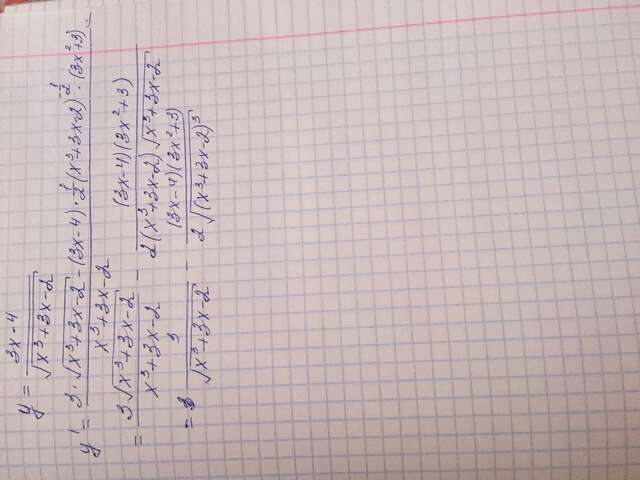 y = (3x-4)/(√(x³+3x-2))
y' = (3·√(x³+3x-2) - (3x-4)·½(x³+3x-2)^(-½)·(3x²+3))/(x³+3x-2) =
= (3√(x³+3x-2))/(x³+3x-2) - ((3x-4)(3x²+3))/(2(x³+3x-2)√(x³+3x-2))
= 3/(√(x³+3x-2)) - ((3x-4)(3x²+3))/(2√((x³+3x-2)³))